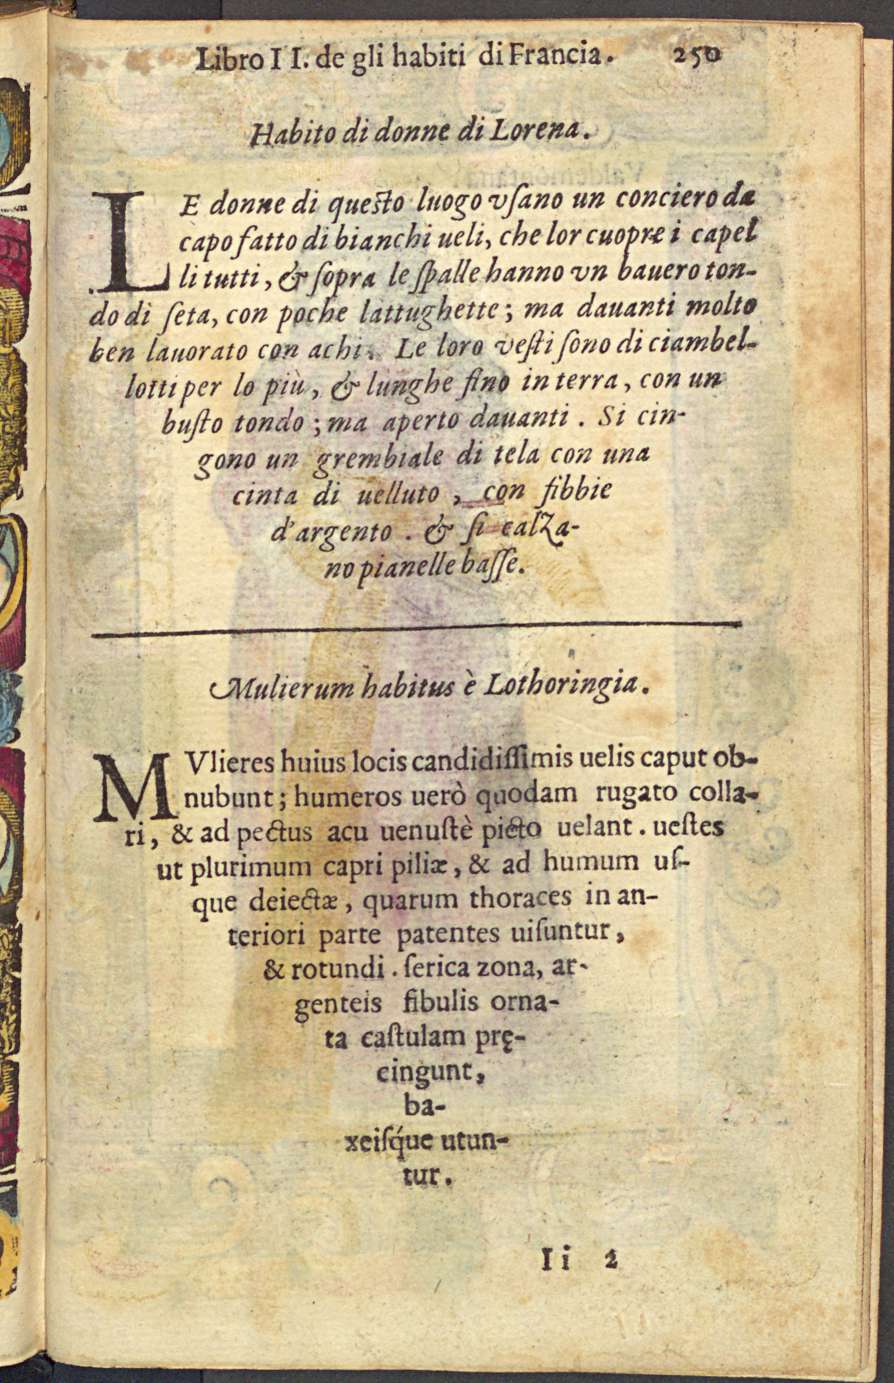 Libro II. de gli habiti di Francia. 250
Habito di donne di Lorena.
LE donne di questo luogo vſano un conciero da
capo fatto di bianchi ueli, che lor cuopre i capel
li tutti, & ſopra le ſpalle hanno vn bauero ton-
do di ſeta, con poche lattughette; ma dauanti molto
ben lauorato con achi. Le loro veſti ſono di ciambel-
lotti per lo più, & lunghe fino in terra, con un
buſto tondo; ma aperto dauanti. Si cin-
gono un grembiale di tela con una
cinta di uelluto, con fibbie
d'argento. & ſi calza-
no pianelle baſſe.
Mulierum habitus è Lothoringia.
MVlieres huius locis candidiſſimis uelis caput ob-
nubunt; humeros uerò quodam rugato colla-
ri, & ad pectus acu uenuſtè picto uelant. ueſtes
ut plurimum capri piliæ, & ad humum uſ-
que deiectæ, quarum thoraces in an-
teriori parte patentes uiſuntur,
& rotundi. ſerica zona, ar-
genteis fibulis orna-
ta caſtulam prę-
cingunt,
ba-
xeiſq́ue utun-
tur.
Ii 2